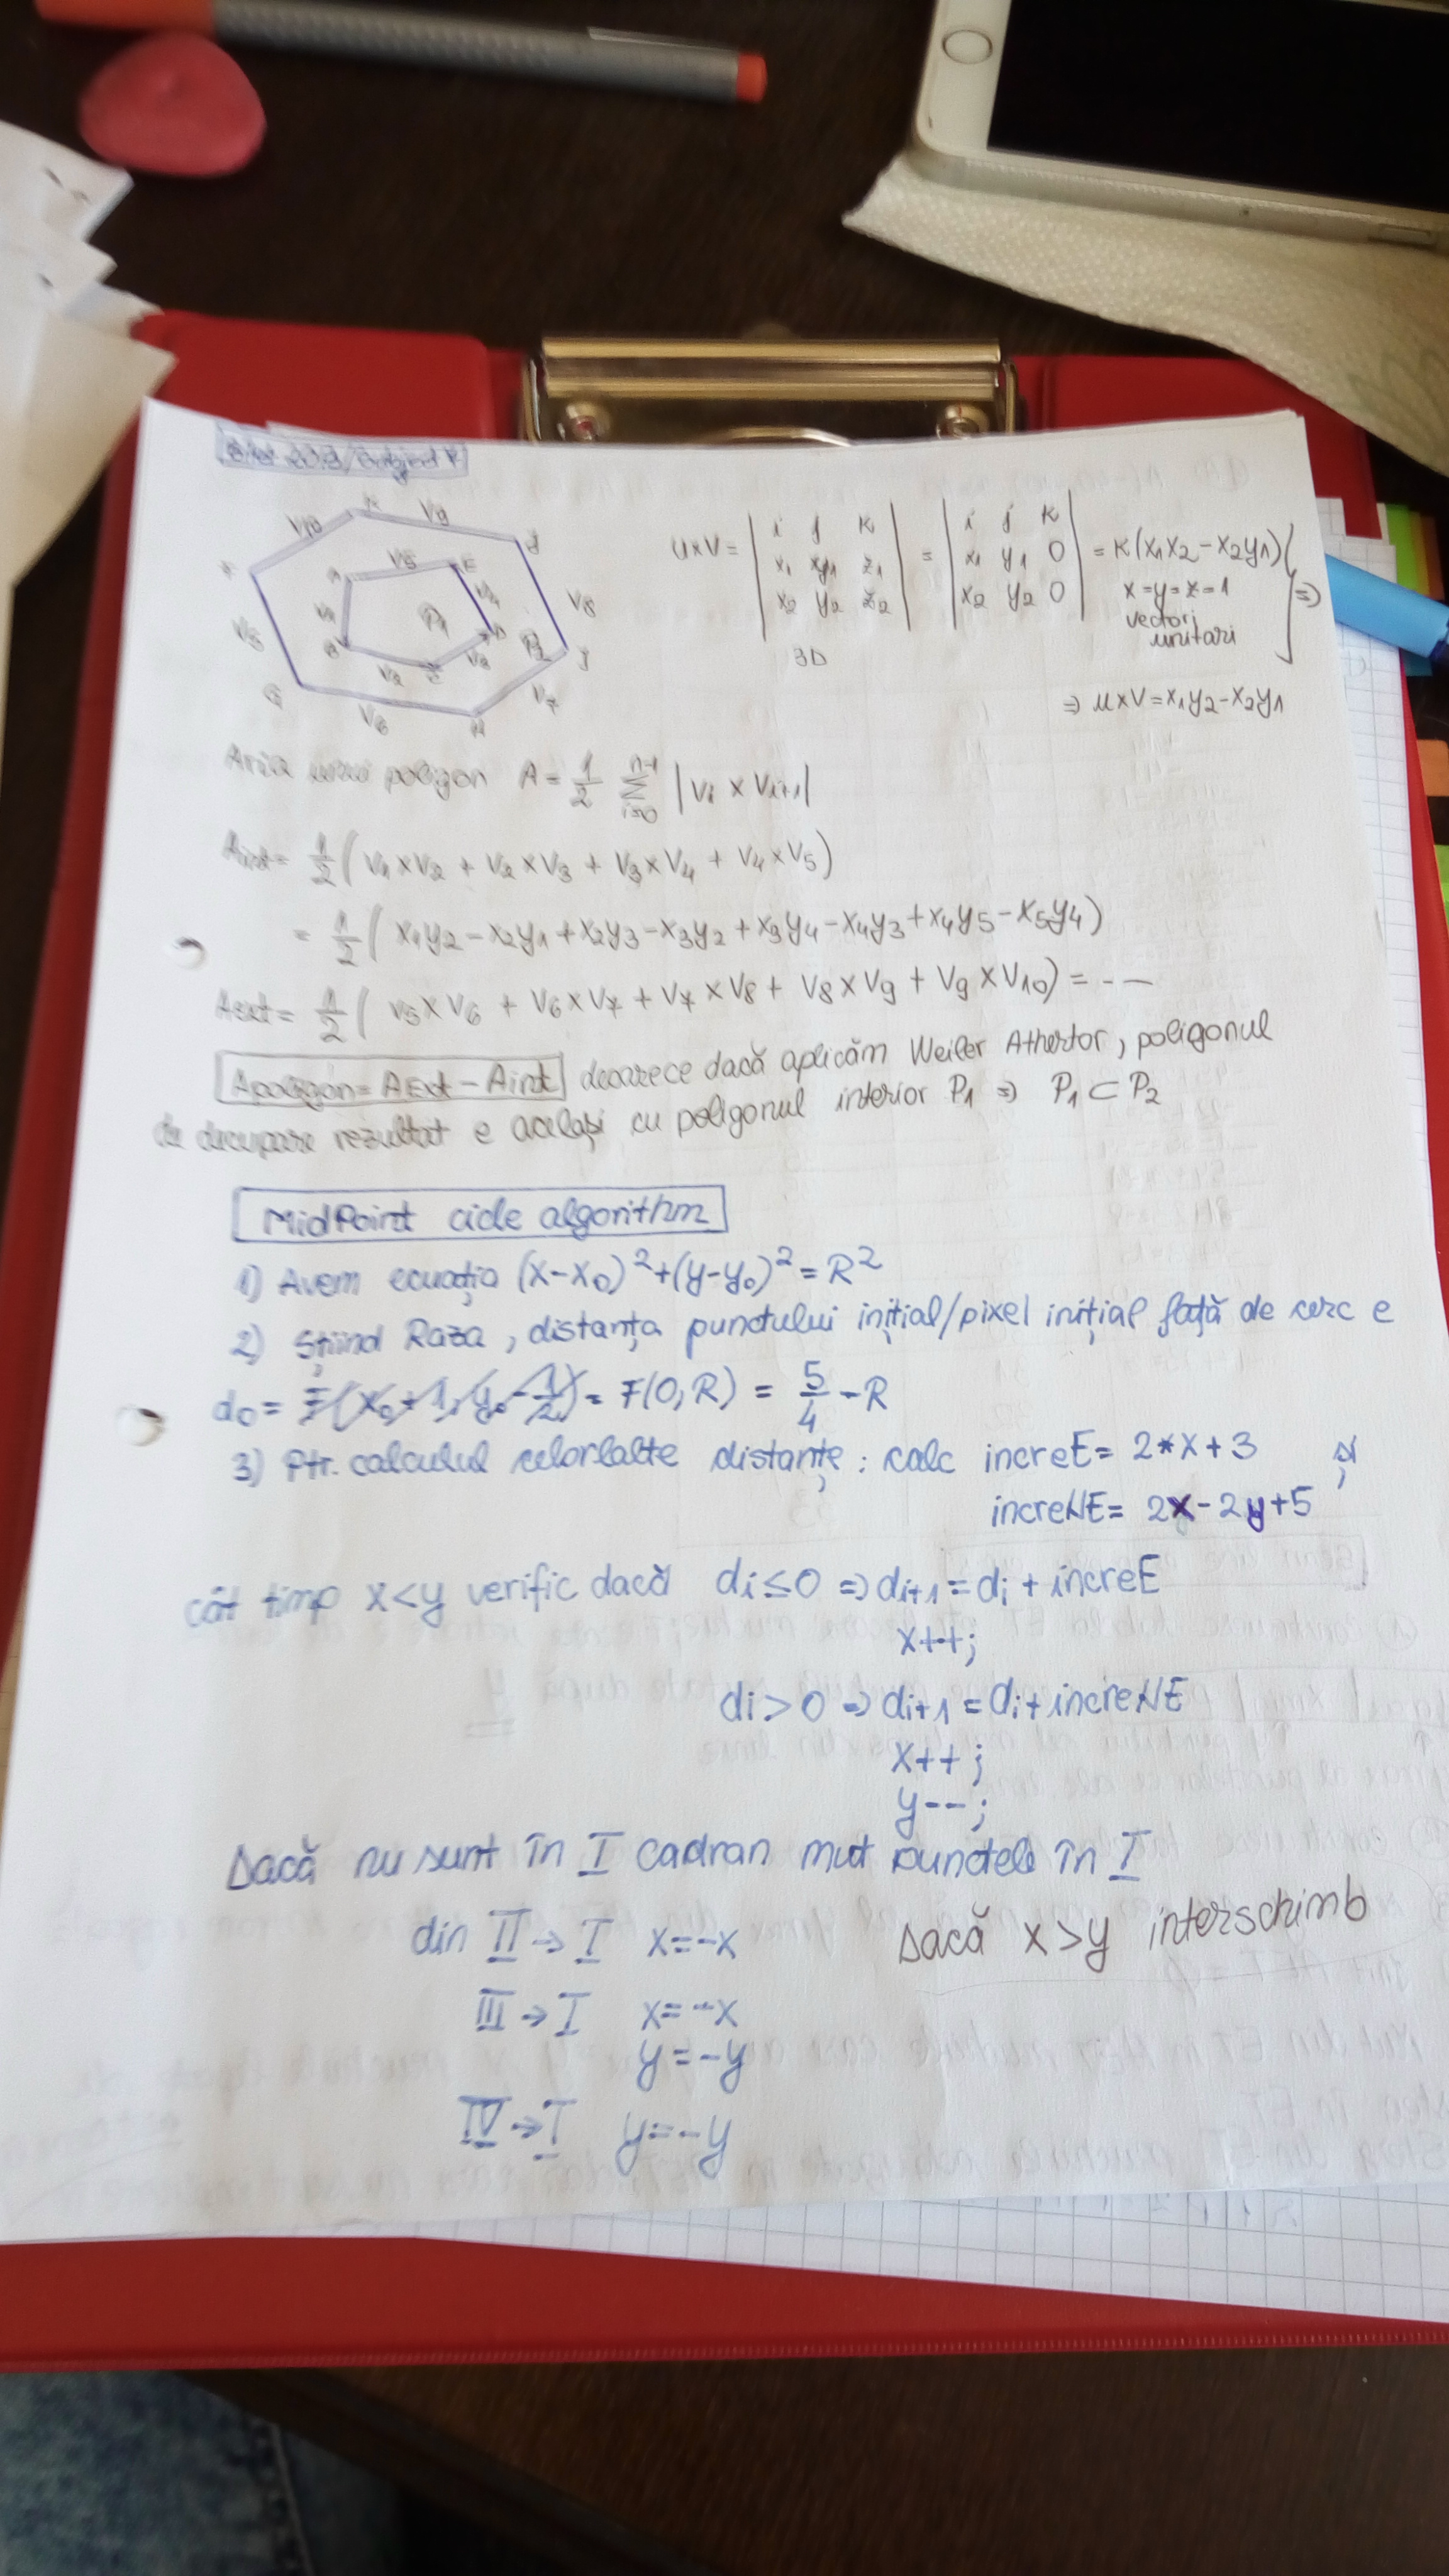 V10 K V9 J
F A V5 E
V1 V4 V8
V5 P1 D P2 I
B V2 C V3
G V6 H V7
u×v = | i j k | = | i j k | = k(x1x2 - x2y1)
| x1 y1 z1 | | x1 y1 0 | x=y=z=1
| x2 y2 z2 | | x2 y2 0 | vectori
unitari ⇒
3D
⇒ u×v = x1y2 - x2y1
Aria unui poligon A = 1/2 Σ i=0 n-1 | Vi × Vi+1 |
Aint = 1/2 ( V1×V2 + V2×V3 + V3×V4 + V4×V5 )
= 1/2 ( x1y2 - x2y1 + x2y3 - x3y2 + x3y4 - x4y3 + x4y5 - x5y4 )
Aext = 1/2 ( V5×V6 + V6×V7 + V7×V8 + V8×V9 + V9×V10 ) = - —
Apoligon = AExt - Aint deoarece dacă aplicăm Weiler Athertor, poligonul
de decupare rezultat e același cu poligonul interior P1 ⇒ P1 ⊂ P2
MidPoint cicle algorithm
1) Avem ecuația (x-x0)² + (y-y0)² = R²
2) Știind Raza, distanța punctului inițial/pixel inițial față de cerc e
d0 = F(x0+1, y0-1/2) = F(0,R) = 5/4 - R
3) Ptr. calculul celorlalte distanțe: calc increE = 2*x+3 și
increNE = 2x-2y+5
cât timp x<y verific dacă di ≤ 0 ⇒ di+1 = di + increE
x++;
di > 0 ⇒ di+1 = di + increNE
x++;
y--;
Dacă nu sunt în I cadran mut punctele în I
din II → I x=-x Dacă x>y interschimb
III → I x=-x
y=-y
IV → I y=-y